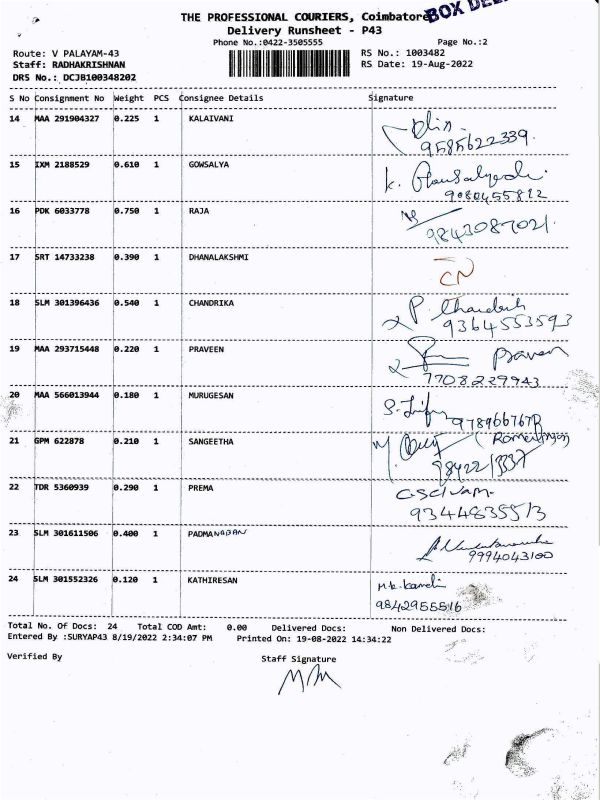 BOX DEL
THE PROFESSIONAL COURIERS, Coimbatore
Delivery Runsheet - P43
Phone No.:0422-3505555 Page No.:2
Route: V PALAYAM-43 RS No.: 1003482
Staff: RADHAKRISHNAN RS Date: 19-Aug-2022
DRS No.: DCJB100348202
S No Consignment No Weight PCS Consignee Details Signature
14 MAA 291904327 0.225 1 KALAIVANI
9585622339
15 IXM 2188529 0.610 1 GOWSALYA
9080455812
16 PDK 6033778 0.750 1 RAJA
9843087021
17 SRT 14733238 0.390 1 DHANALAKSHMI CN
18 SLM 301396436 0.540 1 CHANDRIKA
9364553593
19 MAA 293715448 0.220 1 PRAVEEN Praveen
7708229943
20 MAA 566013944 0.180 1 MURUGESAN
21 GPM 622878 0.210 1 SANGEETHA
22 TDR 5360939 0.290 1 PREMA
9344835513
23 SLM 301611506 0.400 1 PADMANABAN
9994043100
24 SLM 301552326 0.120 1 KATHIRESAN
9842955516
Total No. Of Docs: 24 Total COD Amt: 0.00 Delivered Docs: Non Delivered Docs:
Entered By :SURYAP43 8/19/2022 2:34:07 PM Printed On: 19-08-2022 14:34:22
Verified By Staff Signature